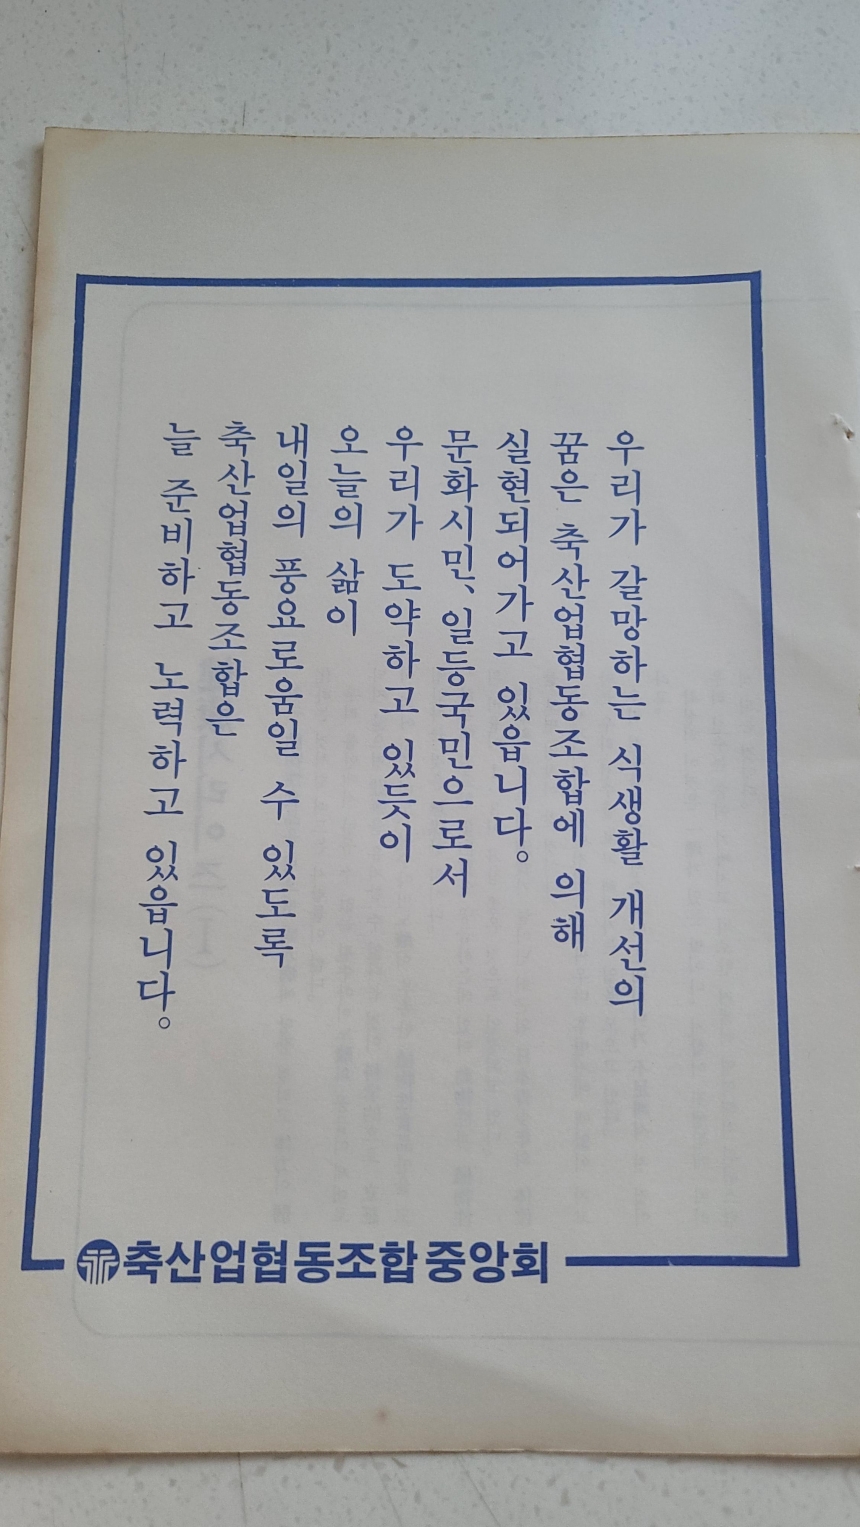 우리가 갈망하는 식생활 개선의
꿈은 축산업협동조합에 의해
실현되어가고 있읍니다.
문화시민, 일등국민으로서
우리가 도약하고 있듯이
오늘의 삶이
내일의 풍요로움일 수 있도록
축산업협동조합은
늘 준비하고 노력하고 있읍니다.
축산업협동조합중앙회